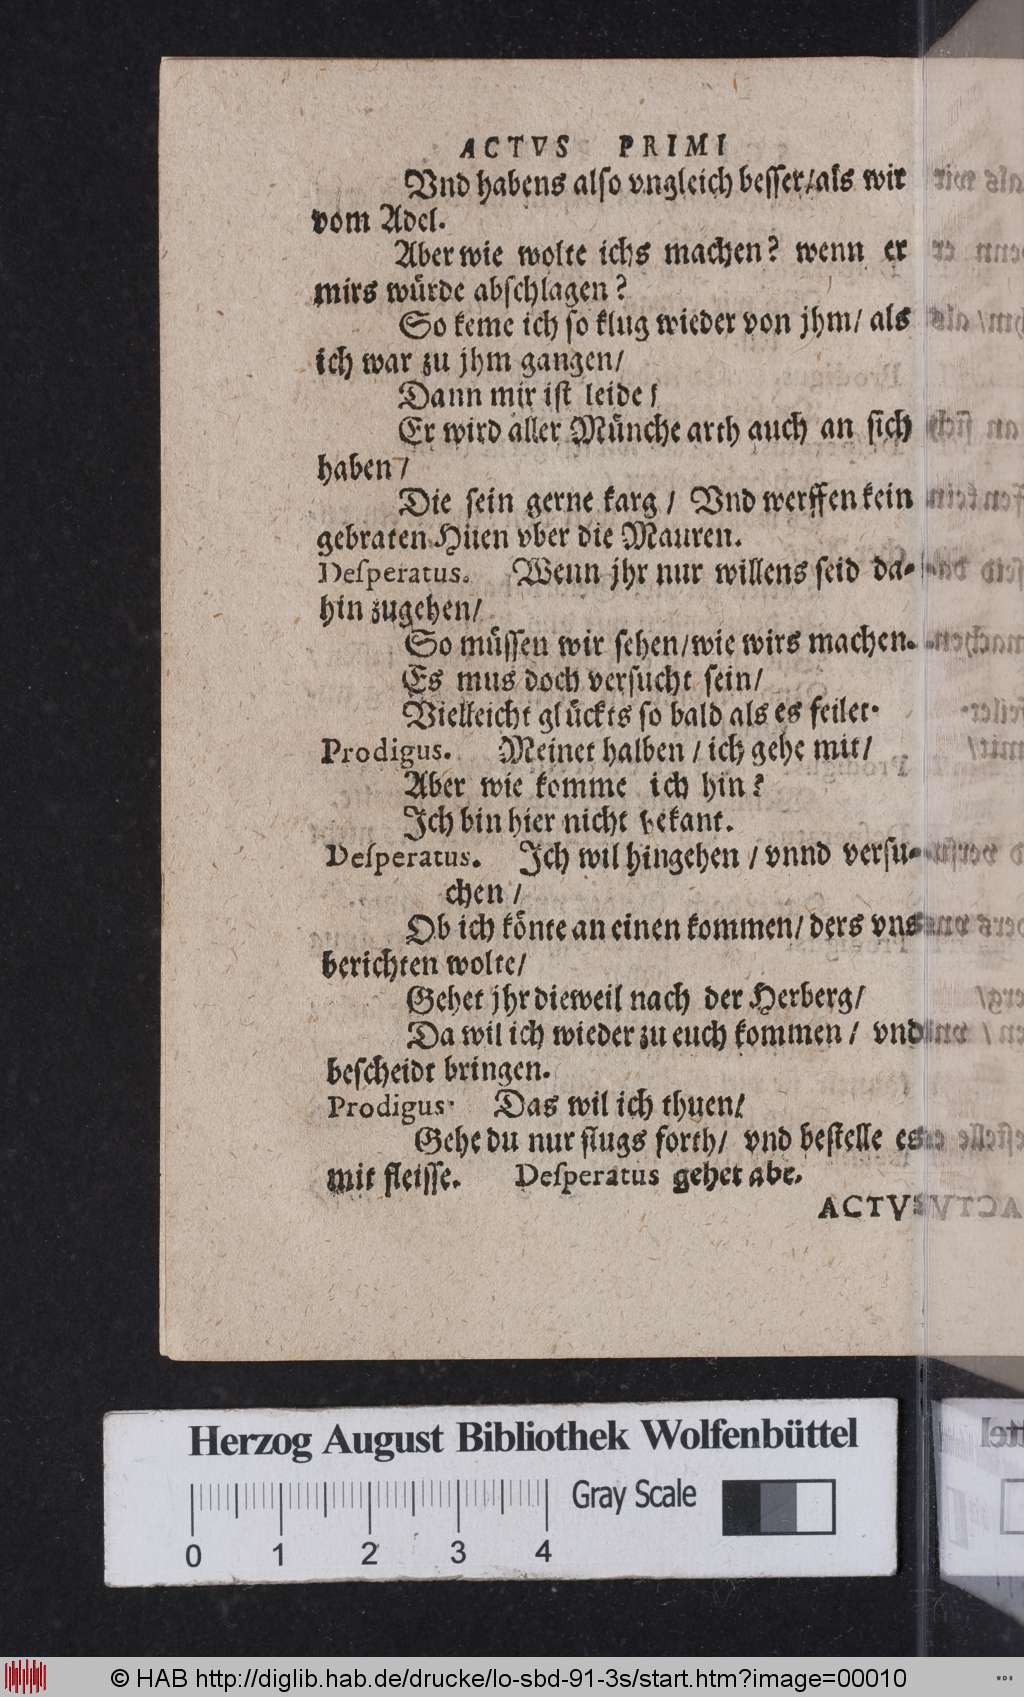 ACTVS PRIMI
Vnd habens also vngleich besser/als wir
vom Adel.
Aber wie wolte ichs machen? wenn er
mirs würde abschlagen?
So keme ich so klug wieder von jhm/ als
ich war zu jhm gangen/
Dann mir ist leide/
Er wird aller Münche arth auch an sich
haben/
Die sein gerne karg/ Vnd werffen kein
gebraten Hüen vber die Mauren.
Desperatus. Wenn jhr nur willens seid da-
hin zugehen/
So müssen wir sehen/wie wirs machen.
Es mus doch versucht sein/
Vielleicht glückts so bald als es feilet.
Prodigus. Meinet halben/ ich gehe mit/
Aber wie komme ich hin?
Ich bin hier nicht bekant.
Desperatus. Ich wil hingehen/ vnnd versu-
chen/
Ob ich könte an einen kommen/ ders vns
berichten wolte/
Gehet jhr dieweil nach der Herberg/
Da wil ich wieder zu euch kommen/ vnd
bescheidt bringen.
Prodigus. Das wil ich thuen/
Gehe du nur flugs forth/ vnd bestelle es
mit fleisse. Desperatus gehet abe.
ACTVS
Herzog August Bibliothek Wolfenbüttel
Gray Scale
0 1 2 3 4
© HAB http://diglib.hab.de/drucke/lo-sbd-91-3s/start.htm?image=00010